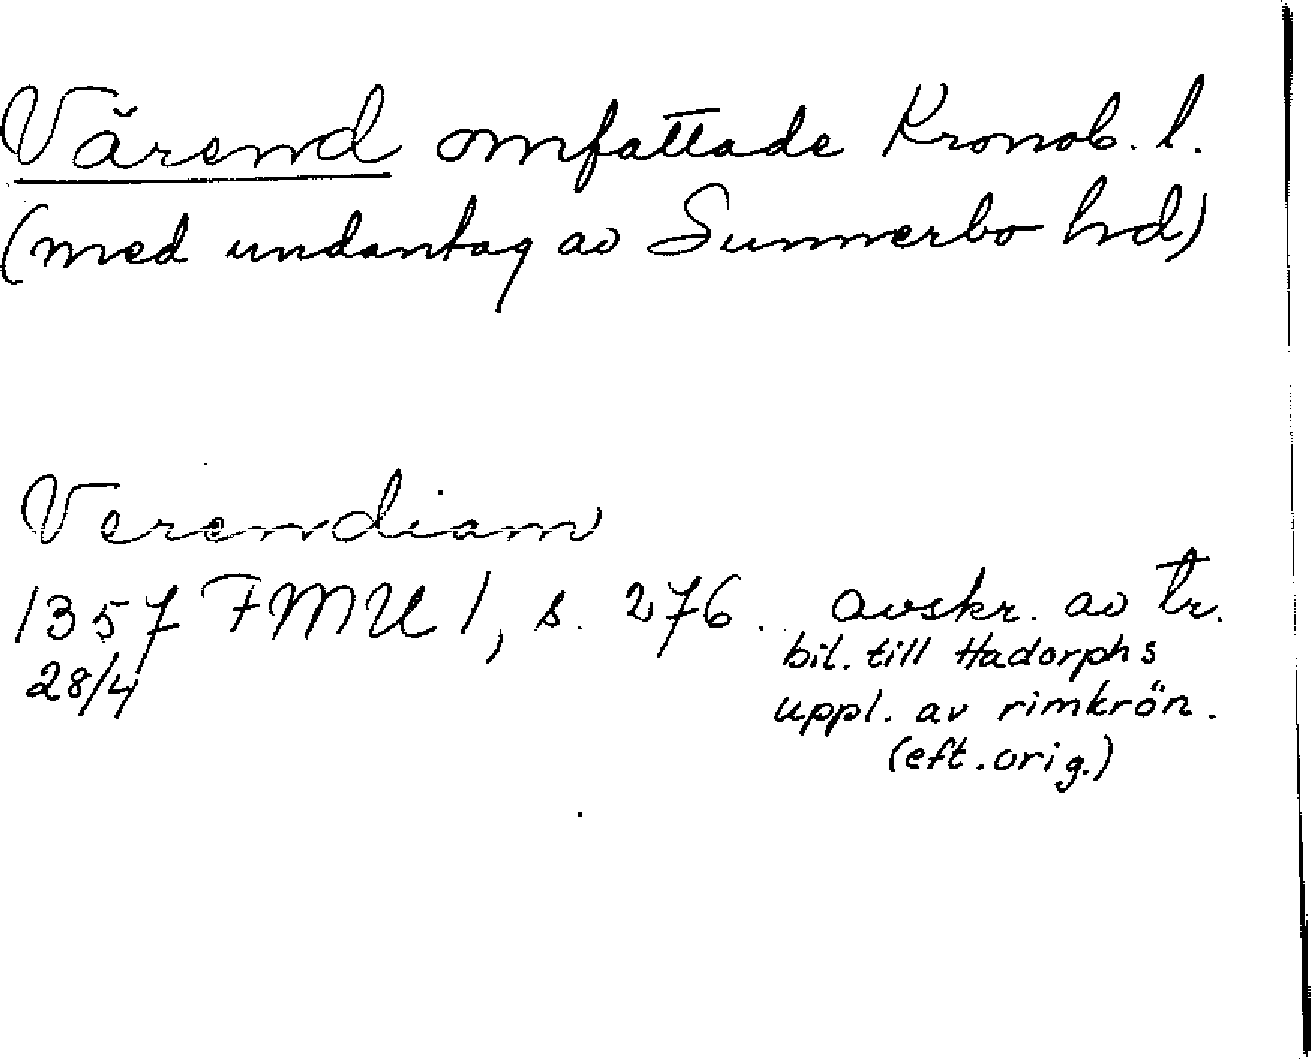 Värend omfattade Kronob. l.
(med undantag av Sunnerbo hd)
Verendiam
1357 FMU 1, s. 276. avskr. av tr.
28/4 bil. till Hadorphs
uppl. av rimkrön.
(eft. orig.)